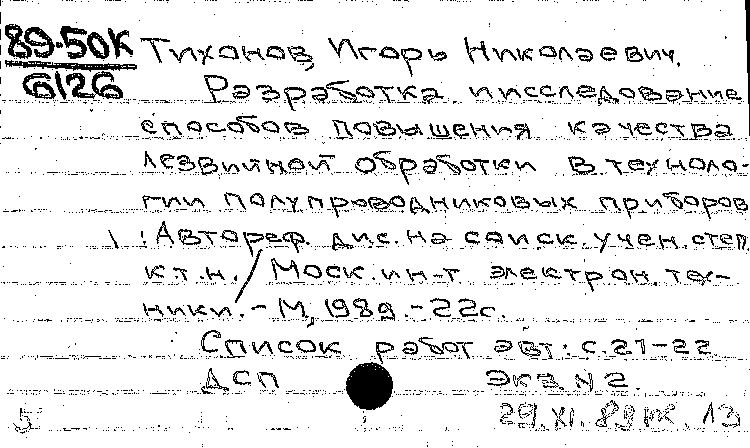 89-50К Тихонов, Игорь Николаевич.
6126 Разработка и исследование
способов повышения качества
лезвийной обработки в техноло-
гии полупроводниковых приборов
: Автореф. дис. на соиск. учен. степ.
к.т.н. / Моск. ин-т электрон. тех-
ники. - М, 1989. - 22с.
Список работ авт: с.21-22
ДСП экз. N2.
5 29.XI.89